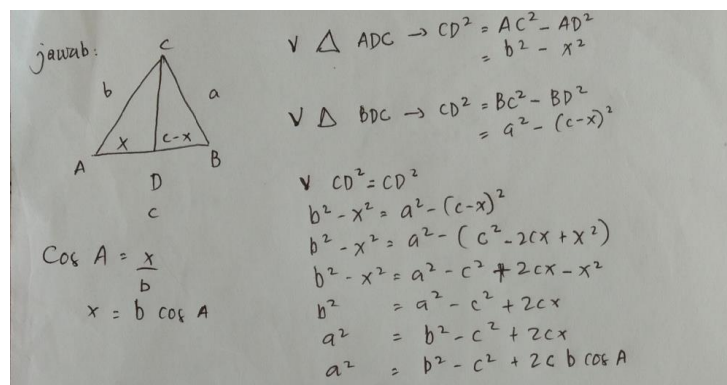 jawab:
C
b
a
x
c-x
A
D
B
c
Cos A = x/b
x = b cos A
V △ ADC → CD² = AC² - AD²
= b² - x²
V △ BDC → CD² = BC² - BD²
= a² - (c-x)²
V CD² = CD²
b² - x² = a² - (c-x)²
b² - x² = a² - (c² - 2cx + x²)
b² - x² = a² - c² + 2cx - x²
b² = a² - c² + 2cx
a² = b² - c² + 2cx
a² = b² - c² + 2c b cos A